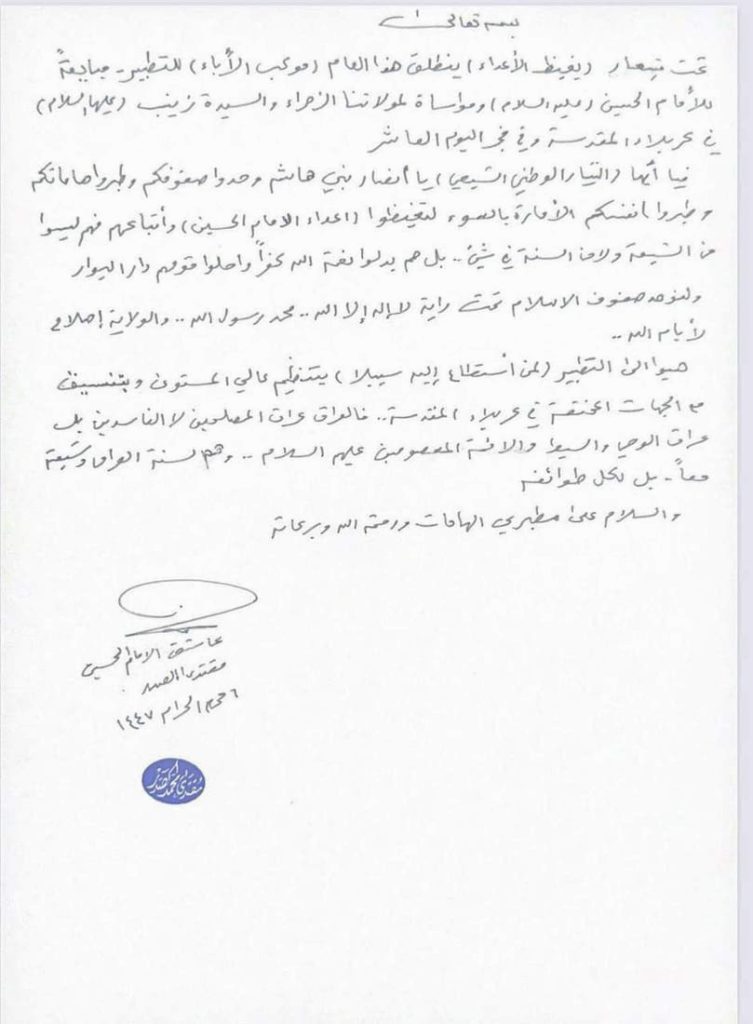 بسمه تعالى
تحت شعار (يغيظ الأعداء) ينطلق هذا العام (موكب الأباء) للتطبير.. مبايعةً
للأمام الحسين (عليه السلام) ومواساة لمولاتنا الزهراء والسيدة زينب (عليهما السلام)
في كربلاء المقدسة وفي فجر اليوم العاشر
فيا أيها (التيار الوطني الشيعي) يا أنصار بني هاشم وحدوا صفوفكم وطبروا هاماتكم
وطبروا أنفسكم الأمارة بالسوء لتغيضوا (اعداء الامام الحسين) وأتباعهم فهم ليسوا
من الشيعة ولا من السنة في شيء.. بل هم بدلوا نعمة الله كفراً واحلوا قومهم دار البوار
ولنوحد صفوف الاسلام تحت راية لا إله إلا الله.. محمد رسول الله.. والولاية
لأيام الله..
هبوا الى التطبير (لمن أستطاع إليه سبيلا) بتنظيم عالي المستوى وبتنسيق
مع الجهات المختصة في كربلاء المقدسة.. فالعراق عراق المصلحين لا الفاسدين بل
عراق الوصي والسبط والائمة المعصومين عليهم السلام.. وهم لسنة العراق وشيعته
معاً.. بل لكل طوائفه
والسلام على مطبري الهامات ورحمة الله وبركاته
عاشق الامام الحسين
مقتدى الصدر
٦ محرم الحرام ١٤٤٧
مقتدى محمد الصدر